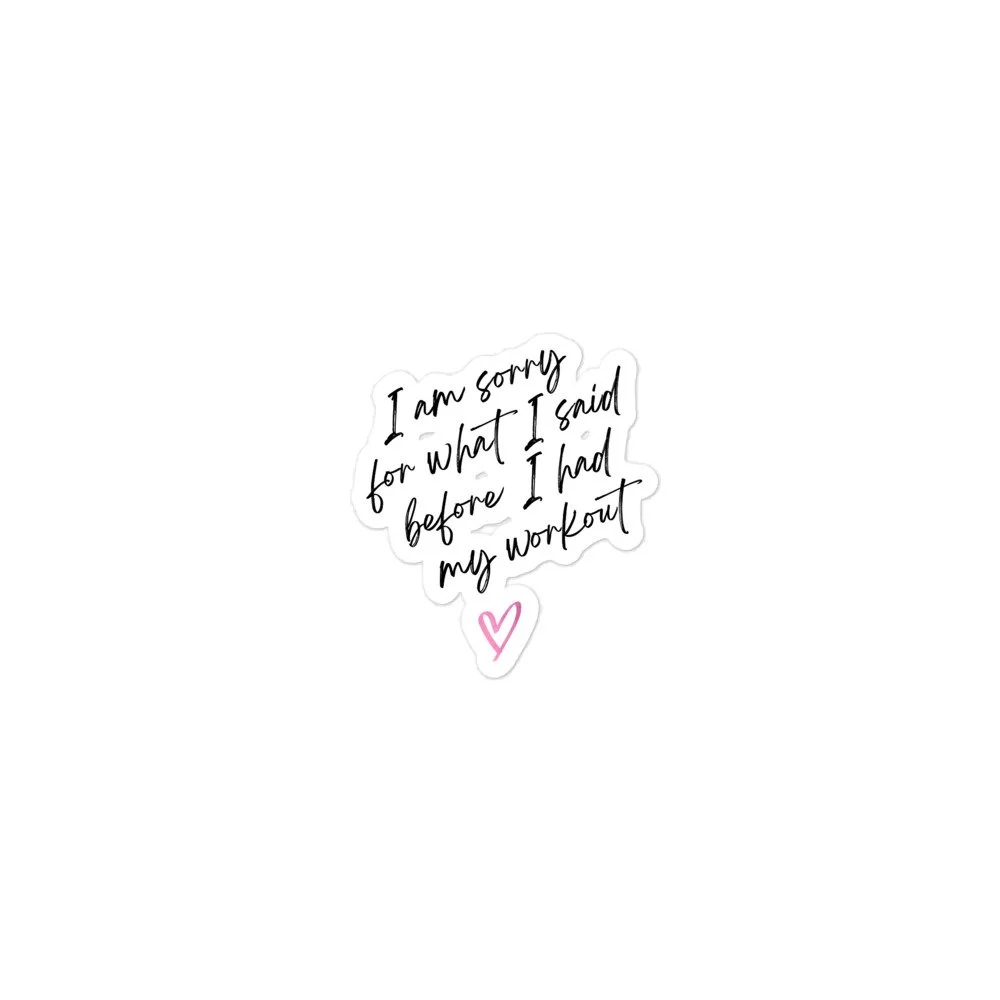 I am sorry
for what I said
before I had
my workout